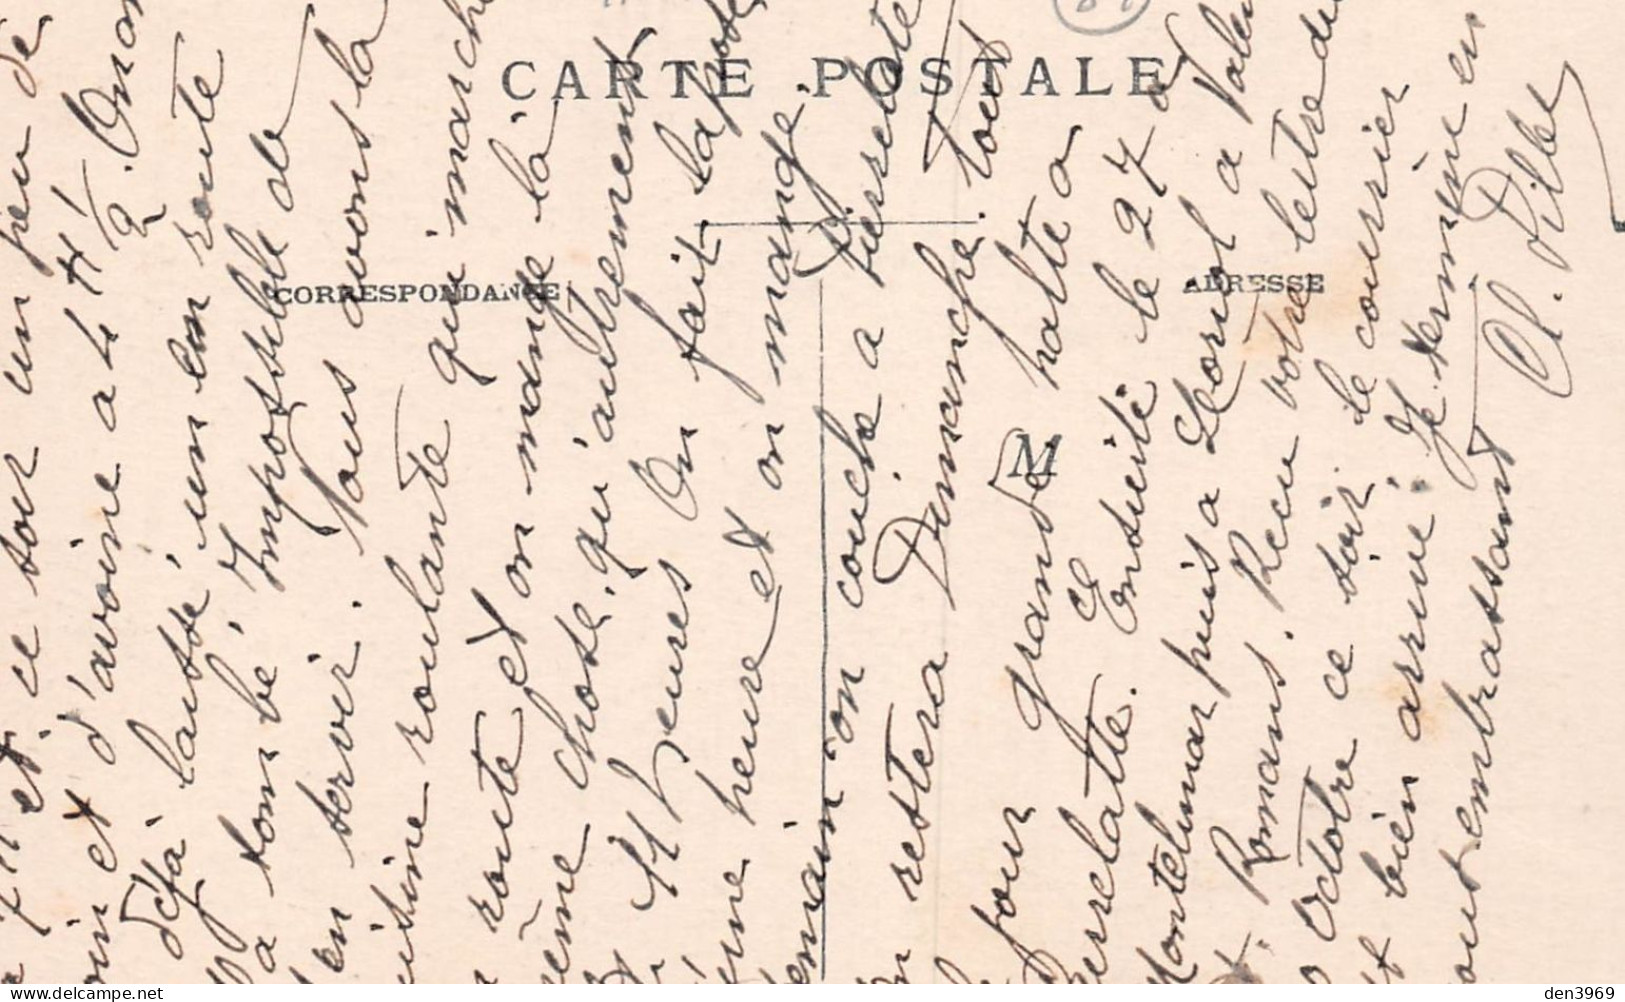 CARTE POSTALE
CORRESPONDANCE
ADRESSE
7h et ce soir un peu de
et d'avoine a 4 H 1/2. On
déjà laissé un en route
a tombé. Impossible de
en servir. Nous avons la
roulante qui marche
route et on mange la
même chose qu'autrement
11 heures On fait la
une heure et on mange.
demain on couche a Pierrelatte
on restera Dimanche. tout
jour grande halte a
Pierrelatte. Ensuite le 27 a
Montelimar puis a Loriol a
Romans. Recu votre lettre du
Octobre ce soir le courrier
est bien arrivé. Je termine en
vous embrassant
Cl. Pilbe
M
den3969